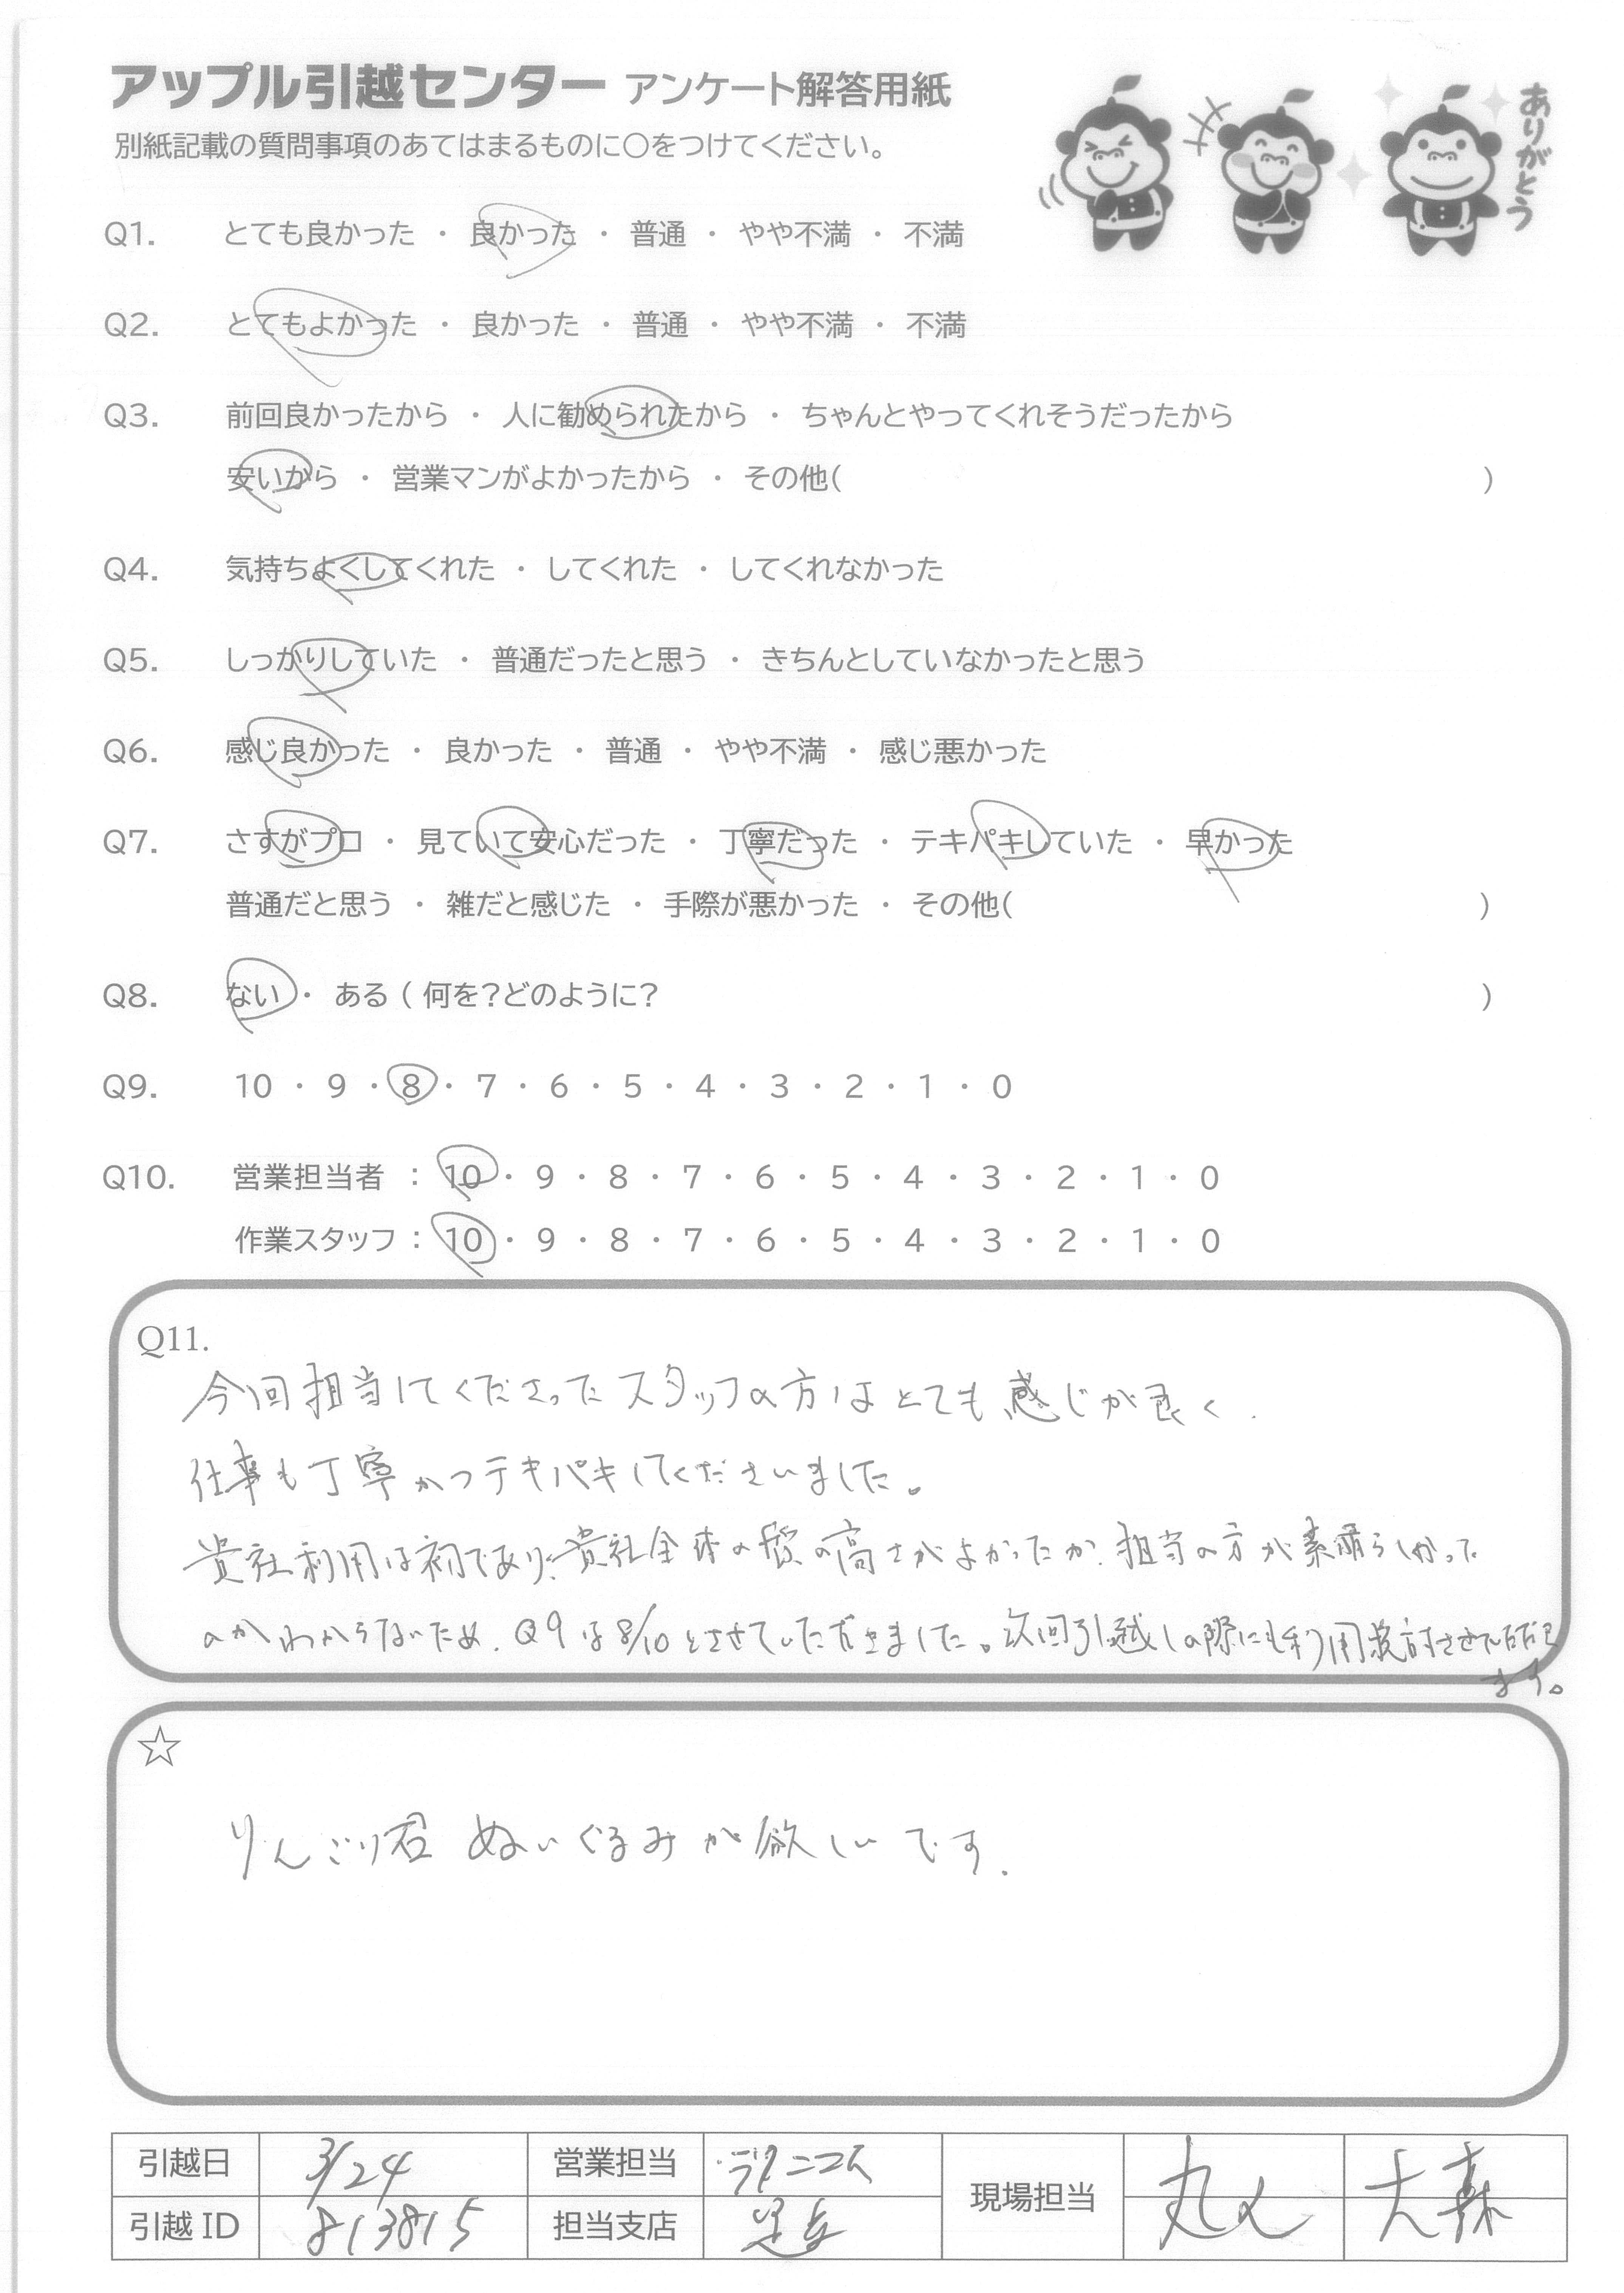 アップル引越センター アンケート解答用紙
別紙記載の質問事項のあてはまるものに○をつけてください。
ありがとう
Q1. とても良かった ・ 良かった ・ 普通 ・ やや不満 ・ 不満
Q2. とてもよかった ・ 良かった ・ 普通 ・ やや不満 ・ 不満
Q3. 前回良かったから ・ 人に勧められたから ・ ちゃんとやってくれそうだったから
安いから ・ 営業マンがよかったから ・ その他( )
Q4. 気持ちよくしてくれた ・ してくれた ・ してくれなかった
Q5. しっかりしていた ・ 普通だったと思う ・ きちんとしていなかったと思う
Q6. 感じ良かった ・ 良かった ・ 普通 ・ やや不満 ・ 感じ悪かった
Q7. さすがプロ ・ 見ていて安心だった ・ 丁寧だった ・ テキパキしていた ・ 早かった
普通だと思う ・ 雑だと感じた ・ 手際が悪かった ・ その他( )
Q8. ない ・ ある ( 何を?どのように? )
Q9. 10 ・ 9 ・ 8 ・ 7 ・ 6 ・ 5 ・ 4 ・ 3 ・ 2 ・ 1 ・ 0
Q10. 営業担当者 : 10 ・ 9 ・ 8 ・ 7 ・ 6 ・ 5 ・ 4 ・ 3 ・ 2 ・ 1 ・ 0
作業スタッフ : 10 ・ 9 ・ 8 ・ 7 ・ 6 ・ 5 ・ 4 ・ 3 ・ 2 ・ 1 ・ 0
Q11.
今回担当してくださったスタッフの方はとても感じが良く、
仕事も丁寧かつテキパキしてくださいました。
貴社利用は初であり、貴社全体の質の高さがよかったか、担当の方が素晴らしかった
のかわからないため、Q9は8/10とさせていただきました。次回引越しの際にも利用検討させていただき
ます。
☆
りんごり君 ぬいぐるみが欲しいです.
引越日 3/24 営業担当 ラクニコス 現場担当 丸 大森
引越ID 813815 担当支店 足立